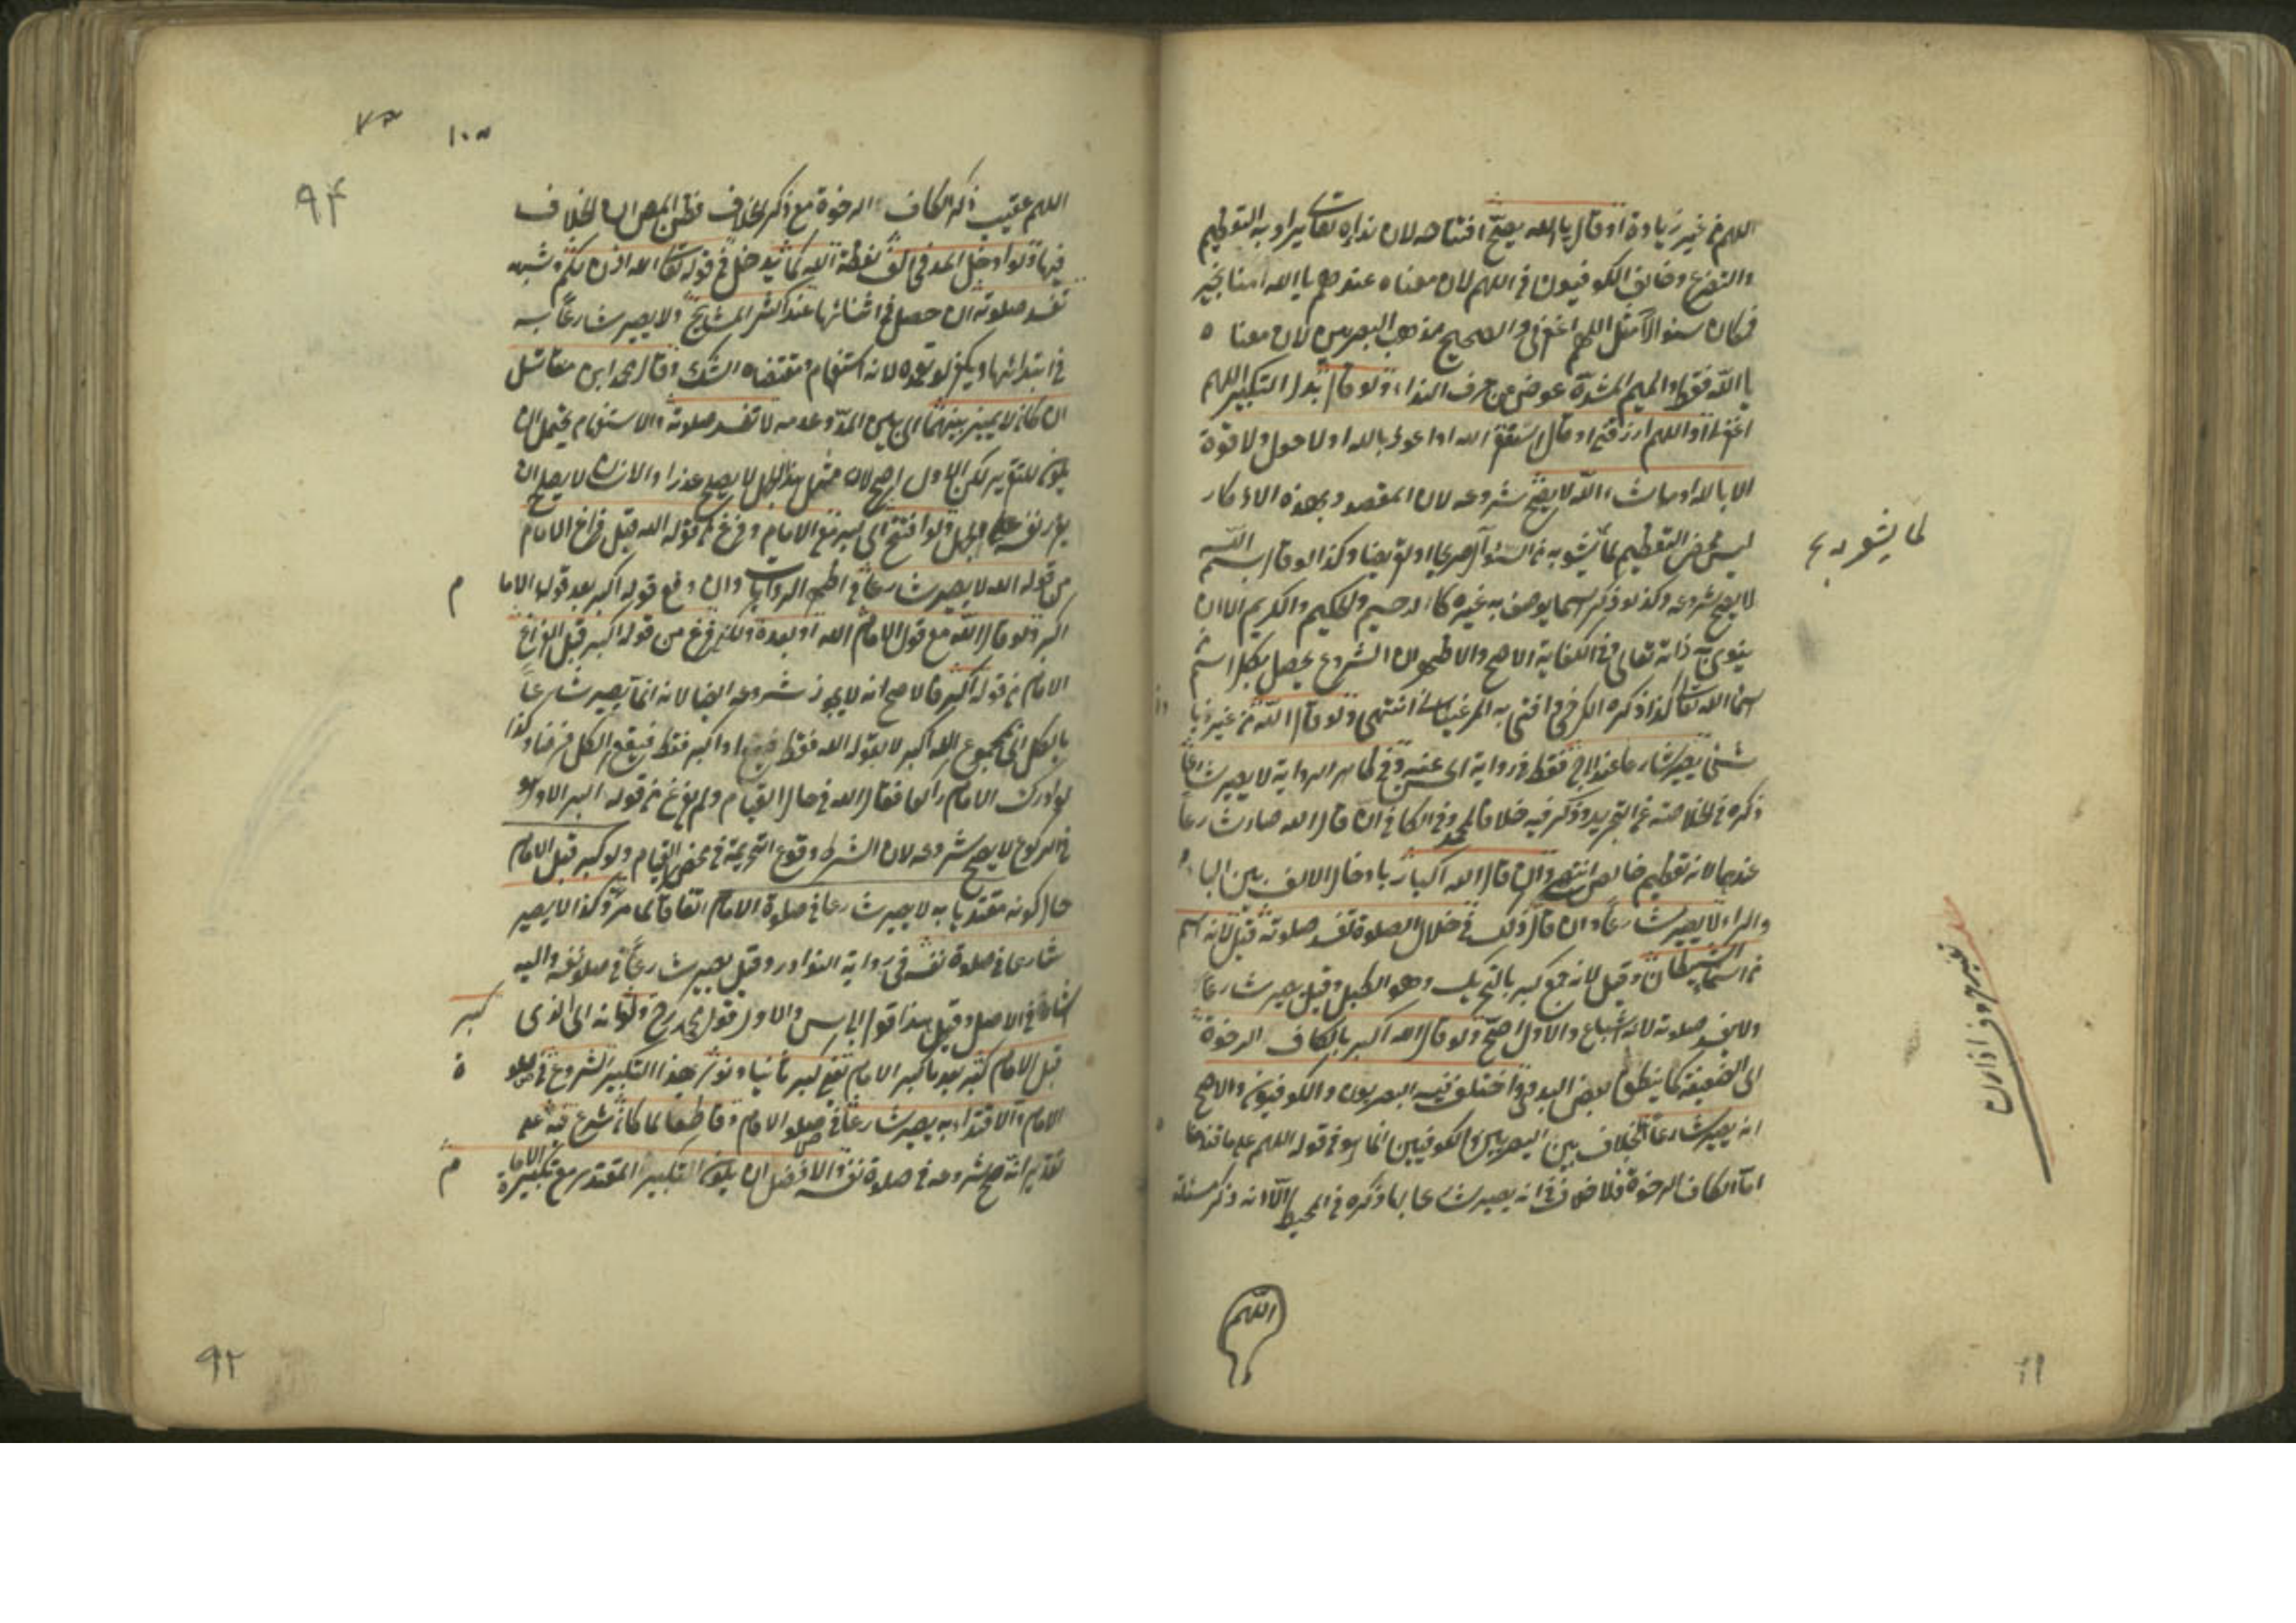 اللهم من غير زيادة او قال يا الله يصح افتتاحه لان نداءه تعالى يراد به التعظيم
والتضرع وخالف الكوفيون فى اللهم لان معناه عندهم يا الله امنا بخير
فكان سؤالا مثل اللهم اغفر لى والصحيح مذهب البصريين لان معناه
يا الله فقط والميم المشددة عوض من حرف النداء ولو قال بدل التكبير اللهم
اغفر لى او اللهم ارزقنى او قال استغفر الله او اعوذ بالله او لا حول ولا قوة
الا بالله او ما شاء الله لا يصح شروعه لان المقصود بهذه الاذكار
ليس محض التعظيم لما يشوبه من السؤال صريحا او تعريضا وكذا لو قال بسم الله
لا يصح شروعه وكذا لو ذكر اسما يوصف به غيره كالرحيم والحكيم والكريم الا ان
ينوى به ذاته تعالى وفى الكفاية الاصح والاظهر ان الشروع يحصل بكل اسم
من اسماء الله تعالى كذا ذكره الكرخى وافتى به المرغينانى انتهى ولو قال الله من غير زيادة
شئ يصير شارعا عند ابى ح فقط فى رواية الحسن عنه وفى ظاهر الرواية لا يصير شارعا
ذكره فى الخلاصة عن التجريد وذكر فيه خلافا لمحمد وفى الكافى ان قال الله صار شارعا
عندهما لانه تعظيم خالص انتهى وان قال الله اكبار بادخال الالف بين الباء
والراء لا يصير شارعا وان قال ذلك فى خلال الصلوة تفسد صلوته قيل لانه اسم
من اسماء الشيطان وقيل لانه جمع كبر بالتحريك وهو الطبل وقيل يصير شارعا
ولا تفسد صلوته لانه اشباع والاول اصح ولو قال الله اكبر بالكاف الرخوة
اى الضعيفة كما ينطق بعض البدو فقد اختلف فيه البصريون والكوفيون والاصح
انه يصير شارعا الخلاف بين البصريين والكوفيين انما هو فى قوله اللهم على ما قدمنا
اما الكاف الرخوة فلا خلاف فى انه يصير شارعا بها ذكره فى المحيط الا انه ذكر مسئلة
اللهم
لما يشوبه
تغيير حروف اذان
اللهم عقيب ذكر الكاف الرخوة مع ذكر الخلاف فظن المص ان الخلاف
فيها ولو ادخل المد فى الف لفظة الله كما يدخل فى قوله تعالى الله اذن لكم وشبهه
تفسد صلوته ان حصل فى اثنائها عند اكثر المشايخ ولا يصير شارعا به
فى ابتدائها ويكفر لو تعمده لانه استفهام ومقتضاه الشك وقال محمد ابن مقاتل
ان كان لا يميز بينهما اى بين المد وعدمه لا تفسد صلوته والاستفهام يحتمل ان
يكون للتقرير لكن الاول اصح لان مثل هذا الجهل لا يصلح عذرا والانسان لا يصلح ان
يقرر نفسه على الجهل ولو افتتح اى كبر مع الامام وفرغ من قوله الله قبل فراغ الامام
من قوله الله لا يصير شارعا فى اظهر الروايات وان وقع قوله اكبر بعد قول الامام
اكبر ولو قال الله مع قول الامام الله او بعده ولكن فرغ من قوله اكبر قبل فراغ
الامام من قوله اكبر فالاصح انه لا يجوز شروعه ايضا لانه انما يصير شارعا
بالكل اى بمجموع الله اكبر لا بقوله الله فقط او اكبر فقط فيقع الكل فرضا وكذا
لو ادرك الامام راكعا فقال الله فى حال القيام ولم يفرغ من قوله اكبر الا وهو
فى الركوع لا يصح شروعه لان الشرط وقوع التحريمة فى محض القيام ولو كبر قبل الامام
حال كونه مقتديا به لا يصير شارعا فى صلوة الامام اتفاقا لما مر وكذا لا يصير
شارعا فى صلوة نفسه فى رواية النوادر وقيل يصير شارعا فى صلوة نفسه واليه
اشار فى الاصل وقيل هذا قول ابى يوس والاول قول محمد رح ولو انه اى الذى كبر
قبل الامام كبر بعد ما كبر الامام يعنى كبر ثانيا ونوى بهذا التكبير الشروع فى صلوة
الامام والاقتداء به يصير شارعا فى صلوة الامام وقاطعا لما كان شرع فيه على
تقدير انه صح شروعه فى صلوة نفسه والافضل ان يكون تكبير المقتدى مع تكبيرة الامام
٩۴